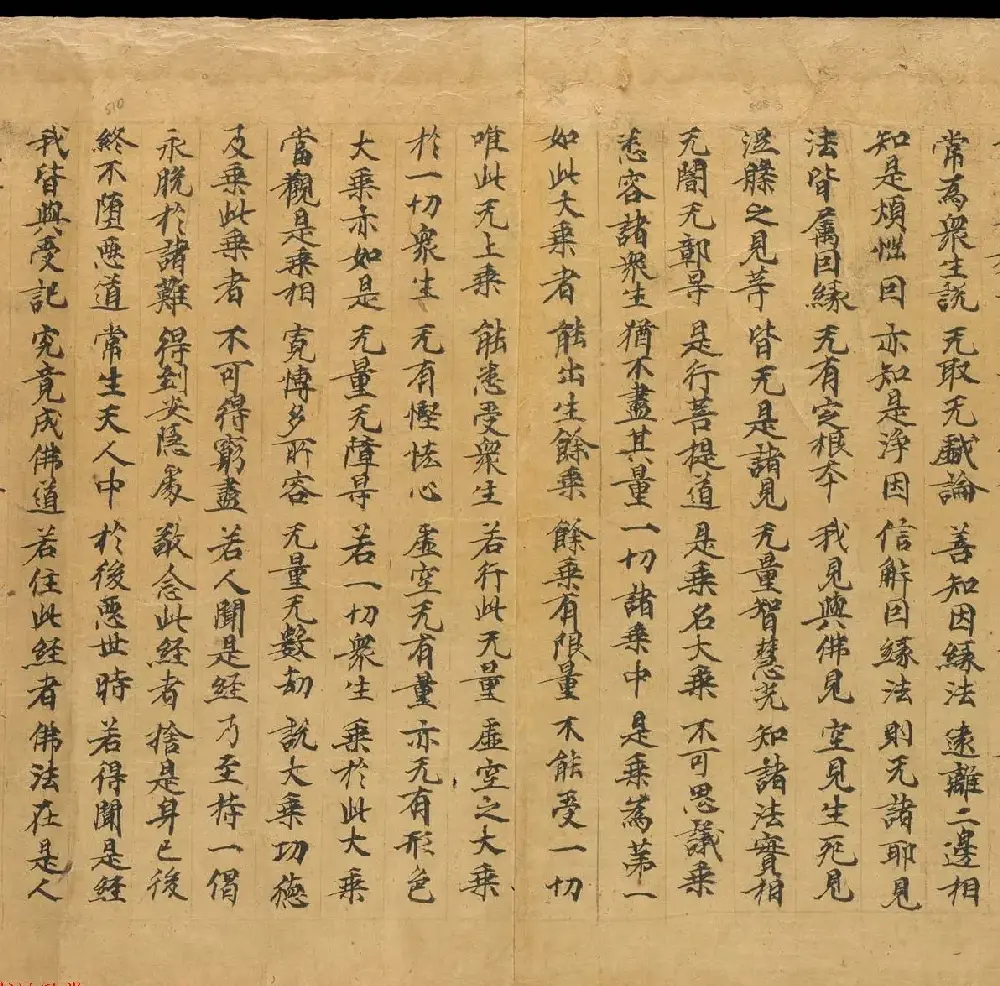 常為衆生說 无取无戲論 善知因緣法 遠離二邊相
知是煩惱因 亦知是淨因 信解因緣法 則无諸耶見
法皆属因緣 无有定根本 我見與佛見 空見生死見
涅槃之見等 皆无是諸見 无量智慧光 知諸法實相
无闇无鄣㝵 是行菩提道 是乗名大乗 不可思議乗
悉容諸衆生 猶不盡其量 一切諸乗中 是乗為苐一
如此大乗者 能出生餘乗 餘乗有限量 不能受一切
唯此无上乗 能悉受衆生 若行此无量 虛空之大乗
於一切衆生 无有慳怯心 虛空无有量 亦无有形色
大乗亦如是 无量无障㝵 若一切衆生 乗於此大乗
當觀是乗相 寛博多所容 无量无數劫 說大乗功德
及乗此乗者 不可得窮盡 若人聞是経 乃至持一偈
永脫於諸難 得到安隱處 敬念此経者 捨是身已後
終不墮惡道 常生天人中 於後惡世時 若得聞是経
我皆與受記 究竟成佛道 若住此経者 佛法在是人